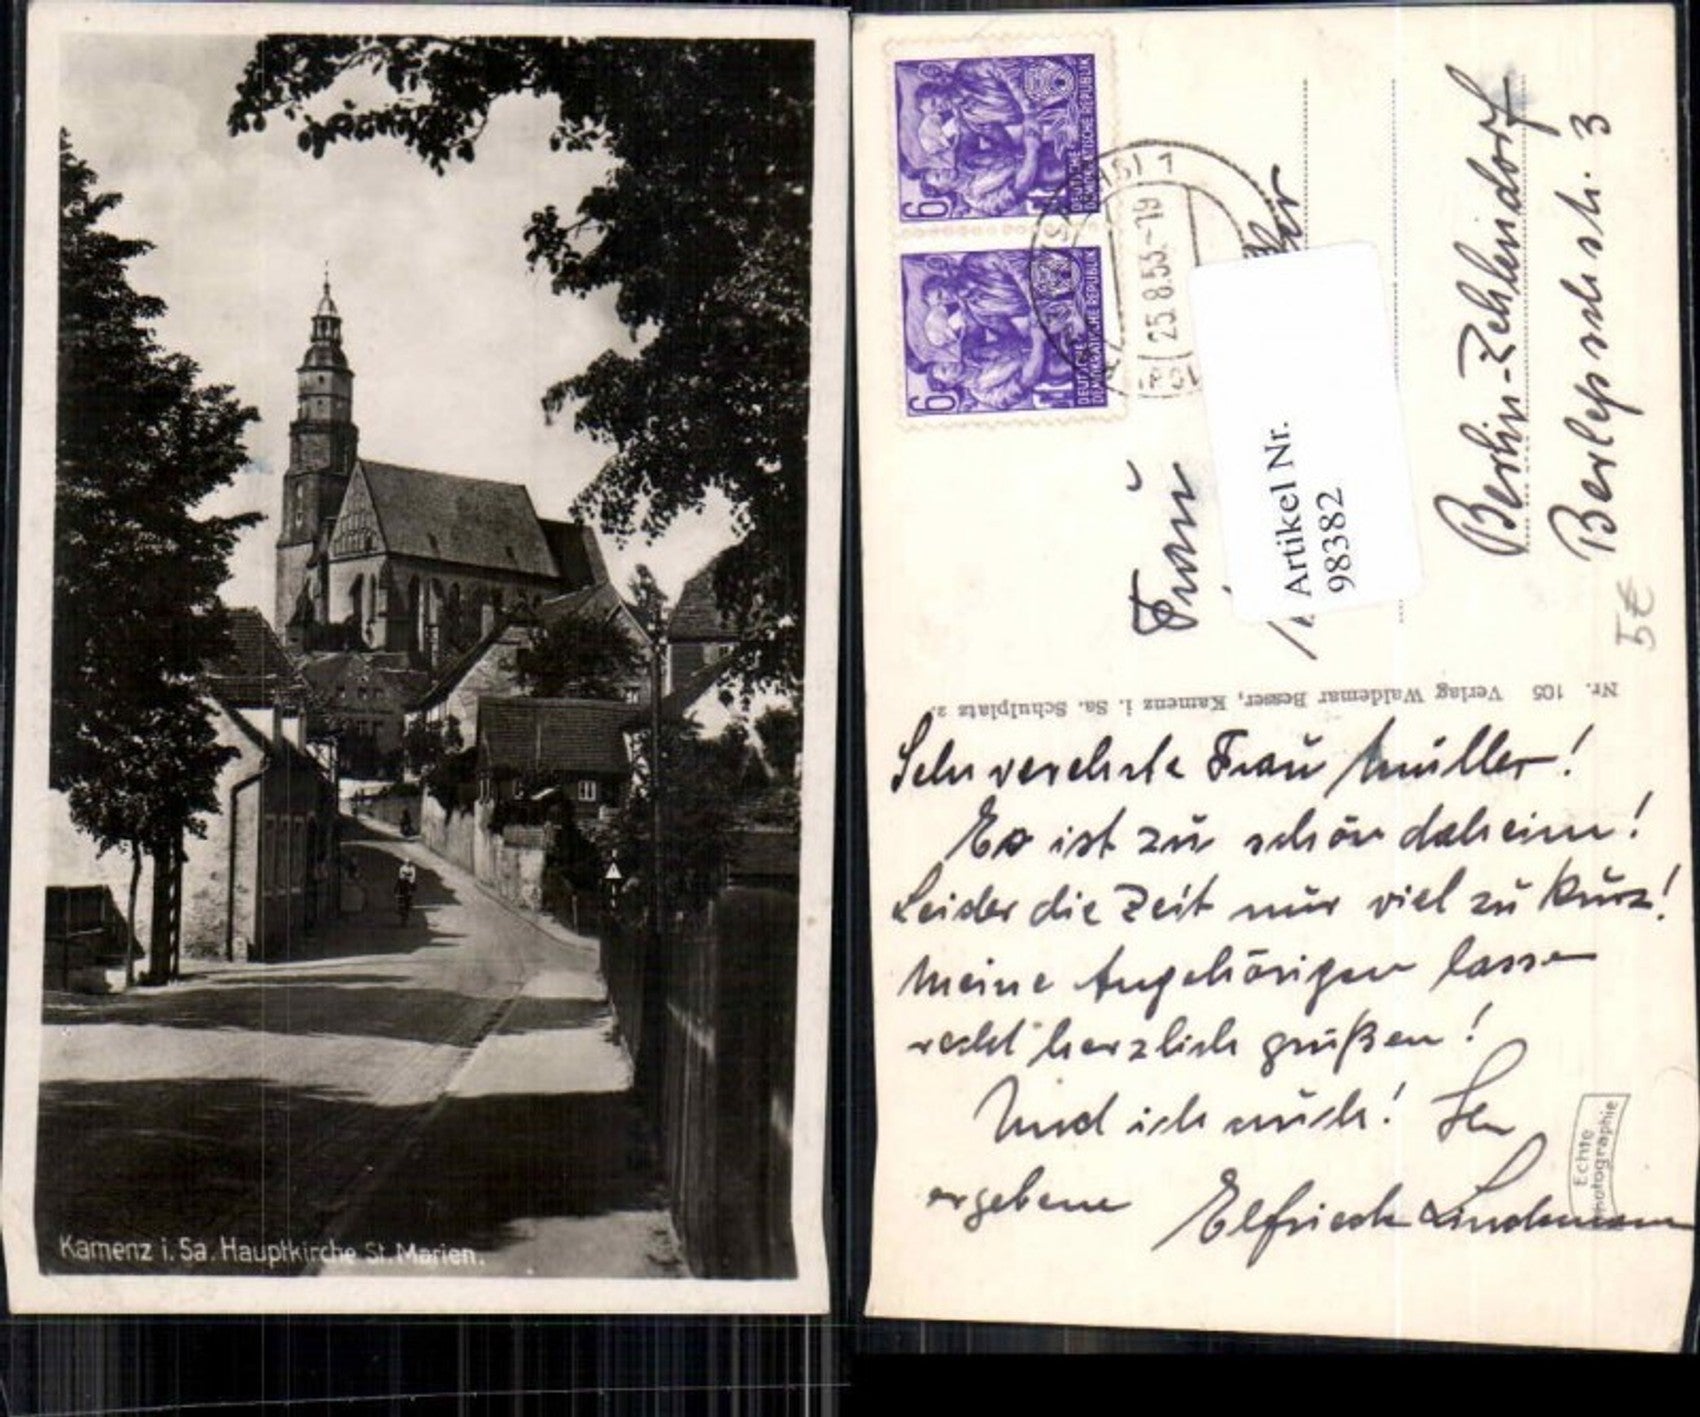 Kamenz i. Sa. Hauptkirche St. Marien.
6
DEUTSCHE
DEMOKRATISCHE REPUBLIK
6
DEUTSCHE
DEMOKRATISCHE REPUBLIK
25.8.55.-19
Frau
Artikel Nr.
98382
Berlin-Zehlendorf
Berlepschstr. 3
5€
Nr. 105 Verlag Waldemar Besser, Kamenz i. Sa. Schulplatz 2.
Sehr verehrte Frau Müller!
Es ist zu schön daheim!
Leider die Zeit nur viel zu kurz!
Meine Angehörigen lassen
recht herzlich grüßen!
Und ich auch! Ihre
ergebene Elfriede Lindemann
Echte
Photographie